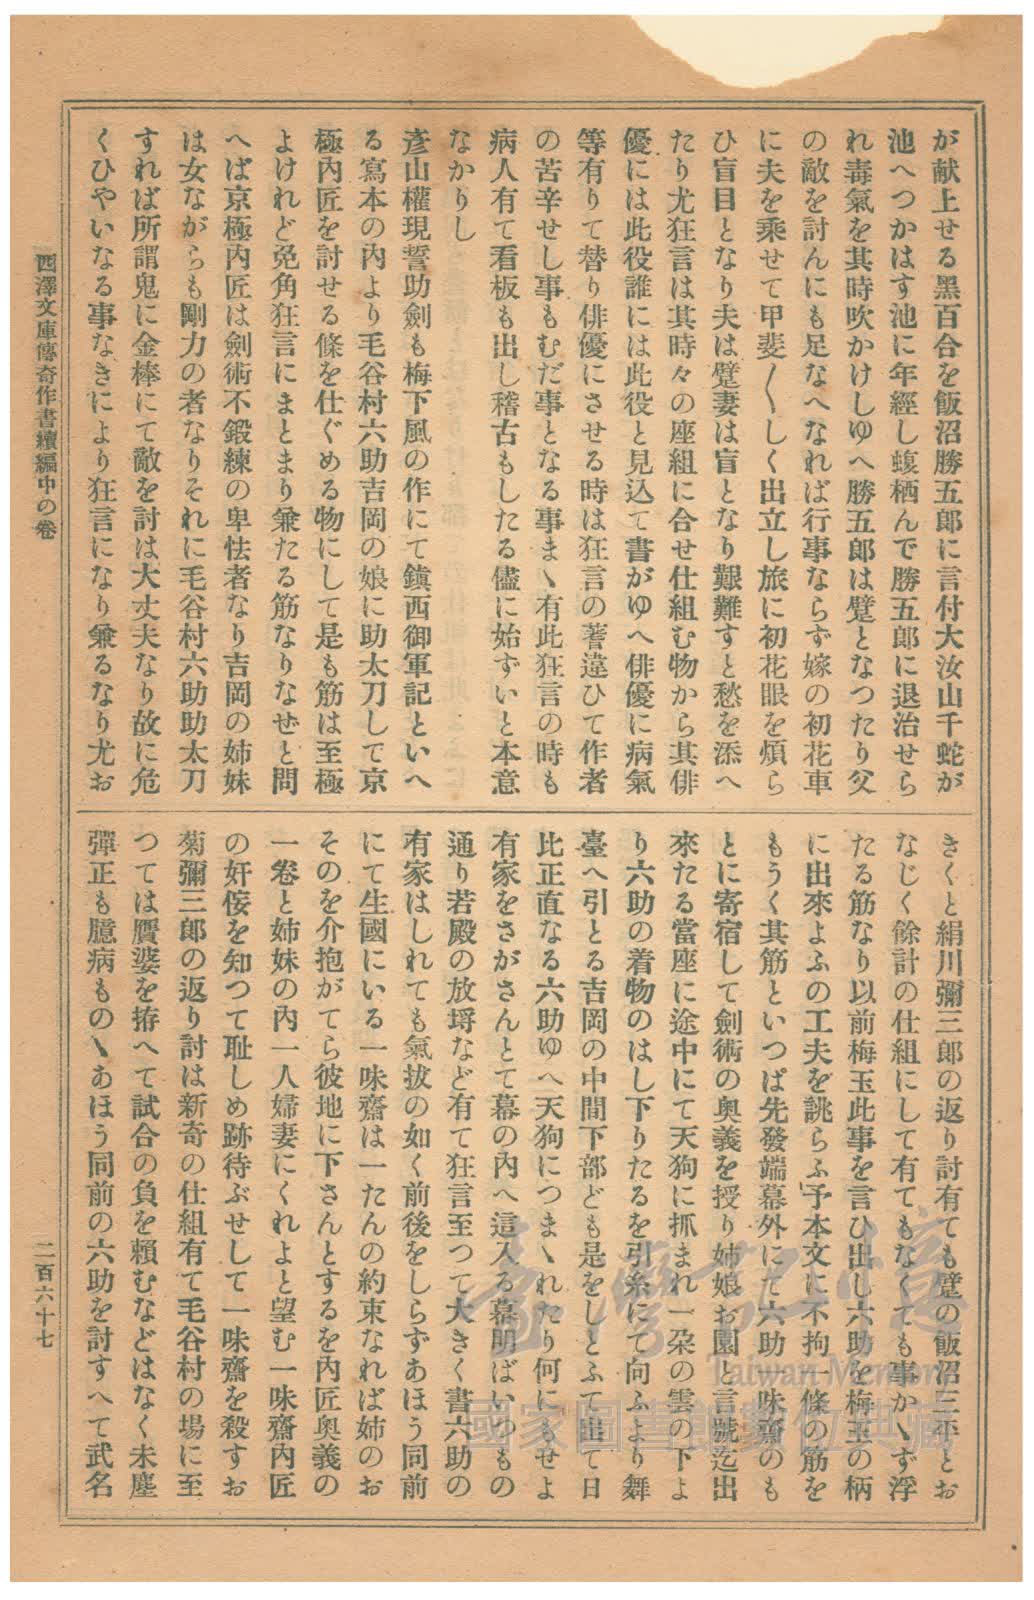 が献上せる黑百合を飯沼勝五郎に言付大汝山千蛇が
池へつかはす池に年經し蝮栖んで勝五郎に退治せら
れ毒氣を其時吹かけしゆへ勝五郎は躄となつたり父
の敵を討んにも足なへなれば行事ならず嫁の初花車
に夫を乘せて甲斐〳〵しく出立し旅に初花眼を煩ら
ひ盲目となり夫は躄妻は盲となり艱難すと愁を添へ
たり尤狂言は其時々の座組に合せ仕組む物から其俳
優には此役誰には此役と見込て書がゆへ俳優に病氣
等有りて替り俳優にさせる時は狂言の蓍違ひて作者
の苦辛せし事もむだ事となる事まゝ有此狂言の時も
病人有て看板も出し稽古もしたる儘に始ずいと本意
なかりし
彥山權現誓助劍も梅下風の作にて鎭西御軍記といへ
る寫本の內より毛谷村六助吉岡の娘に助太刀して京
極內匠を討せる條を仕ぐめる物にして是も筋は至極
よけれど兎角狂言にまとまり兼たる筋なりなぜと問
へば京極內匠は劍術不鍛練の卑怯者なり吉岡の姉妹
は女ながらも剛力の者なりそれに毛谷村六助助太刀
すれば所謂鬼に金棒にて敵を討は大丈夫なり故に危
くひやいなる事なきにより狂言になり兼るなり尤お
きくと絹川彌三郎の返り討有ても躄の飯沼三平とお
なじく餘計の仕組にして有てもなくても事かゝず浮
たる筋なり以前梅玉此事を言ひ出し六助を梅玉の柄
に出來よふの工夫を誂らふ予本文に不拘一條の筋を
もうく其筋といつぱ先發端幕外にて六助一味齋のも
とに寄宿して劍術の奥義を授り姉娘お園と言號迄出
來たる當座に途中にて天狗に抓まれ一朶の雲の下よ
り六助の着物のはし下りたるを引糸にて向ふより舞
臺へ引とる吉岡の中間下部ども是をしとふて出て日
比正直なる六助ゆへ天狗につまゝれたり何にもせよ
有家をさがさんとて幕の內へ這入る幕明ばいつもの
通り若殿の放埓など有て狂言至つて大きく書六助の
有家はしれても氣拔の如く前後をしらずあほう同前
にて生國にいる一味齋は一たんの約束なれば姉のお
そのを介抱がてら彼地に下さんとするを內匠奥義の
一卷と姉妹の內一人婦妻にくれよと望む一味齋內匠
の奸佞を知つて耻しめ跡待ぶせして一味齋を殺すお
菊彌三郎の返り討は新奇の仕組有て毛谷村の場に至
つては贋婆を拵へて試合の負を賴むなどはなく未塵
彈正も臆病ものゝあほう同前の六助を討すへて武名
西澤文庫傳奇作書續編中の卷
二百六十七
臺灣記憶
Taiwan Memory
國家圖書館數位典藏